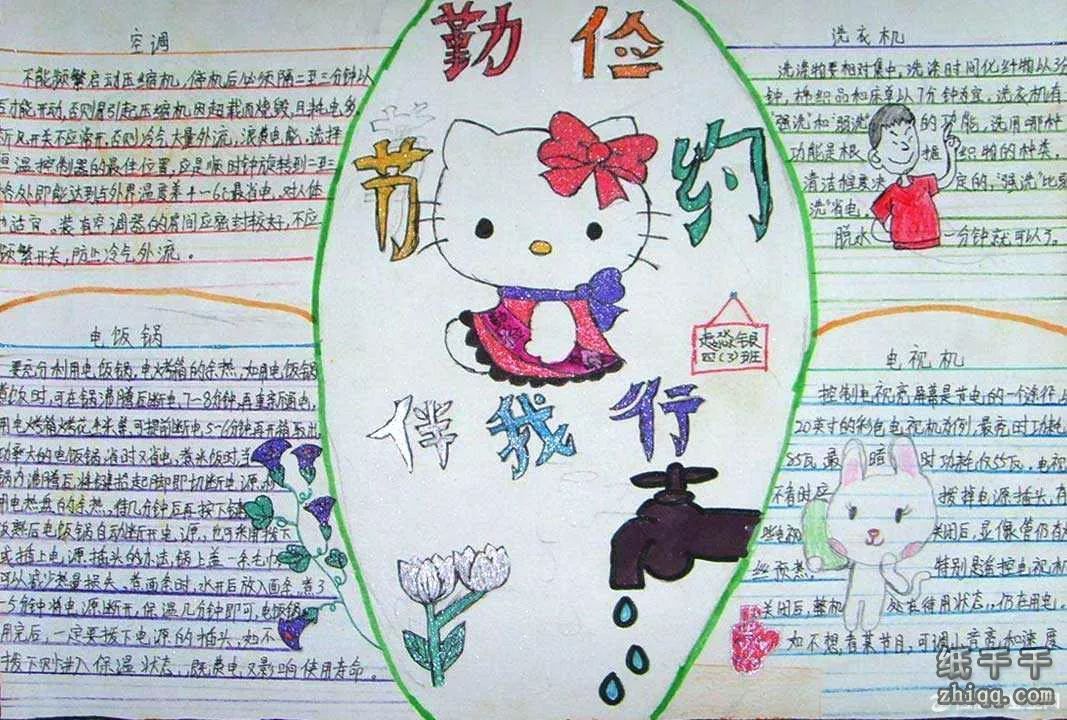 勤俭
节约
伴我行
赵淼银
四(3)班
空调
不能频繁启动压缩机,停机后必须隔二至三分钟以
后才能开动,否则易引起压缩机因超载而烧毁,且耗电多。
开关不应常开,否则冷气大量外流,浪费电能,选择
温控制器的最佳位置,应是顺时钟旋转到二至三
处即能达到与外界温度差4-6℃最省电,对人体
适宜。装有空调器的房间应密封较好,不应
频繁开关,防止冷气外流。
电饭锅
要充分利用电饭锅,电烤箱的余热,如用电饭锅
煮饭时,可在锅沸腾后断电7-8分钟,再重新通电,
用电烤箱烤花生米等可提前断电5-6分钟再开箱取出
功率大的电饭锅省时又省电,煮米饭时,当
锅内沸腾后将键抬起即切断电源,
用电热盘的余热,待几分钟后再按下键
饭熟后电饭锅自动断开电源,也可采用拔下
或插上电源插头的办法,锅上盖一条毛巾
可以减少热量损失,煮面条时,水开后放入面条,煮3
-5分钟将电源断开,保温几分钟即可,电饭锅
用完后,一定要拔下电源的插头,如不
拔下则进入保温状态,既费电又影响使用寿命。
洗衣机
洗涤物要相对集中,洗涤时间化纤物以3分
钟,棉织品和床单以7分钟为宜,洗衣机有
"强洗"和"弱洗"的功能,选用哪种
功能是根据织物的种类,
清洁程度决定的,"强洗"比弱
洗"省电。
脱水一分钟就可以了。
电视机
控制电视亮屏幕是节电的一个途径,
20英寸的彩色电视机为例,最亮时功耗
85瓦,最暗时功耗仅55瓦,电视
不看时应拔掉电源插头,有
些电视关闭后,显像管仍有
丝预热,特别是遥控电视机
关闭后,整机处在待用状态,仍在用电。
如不想看某节目,可调小音亮和速度
纸干干
zhiqq.com